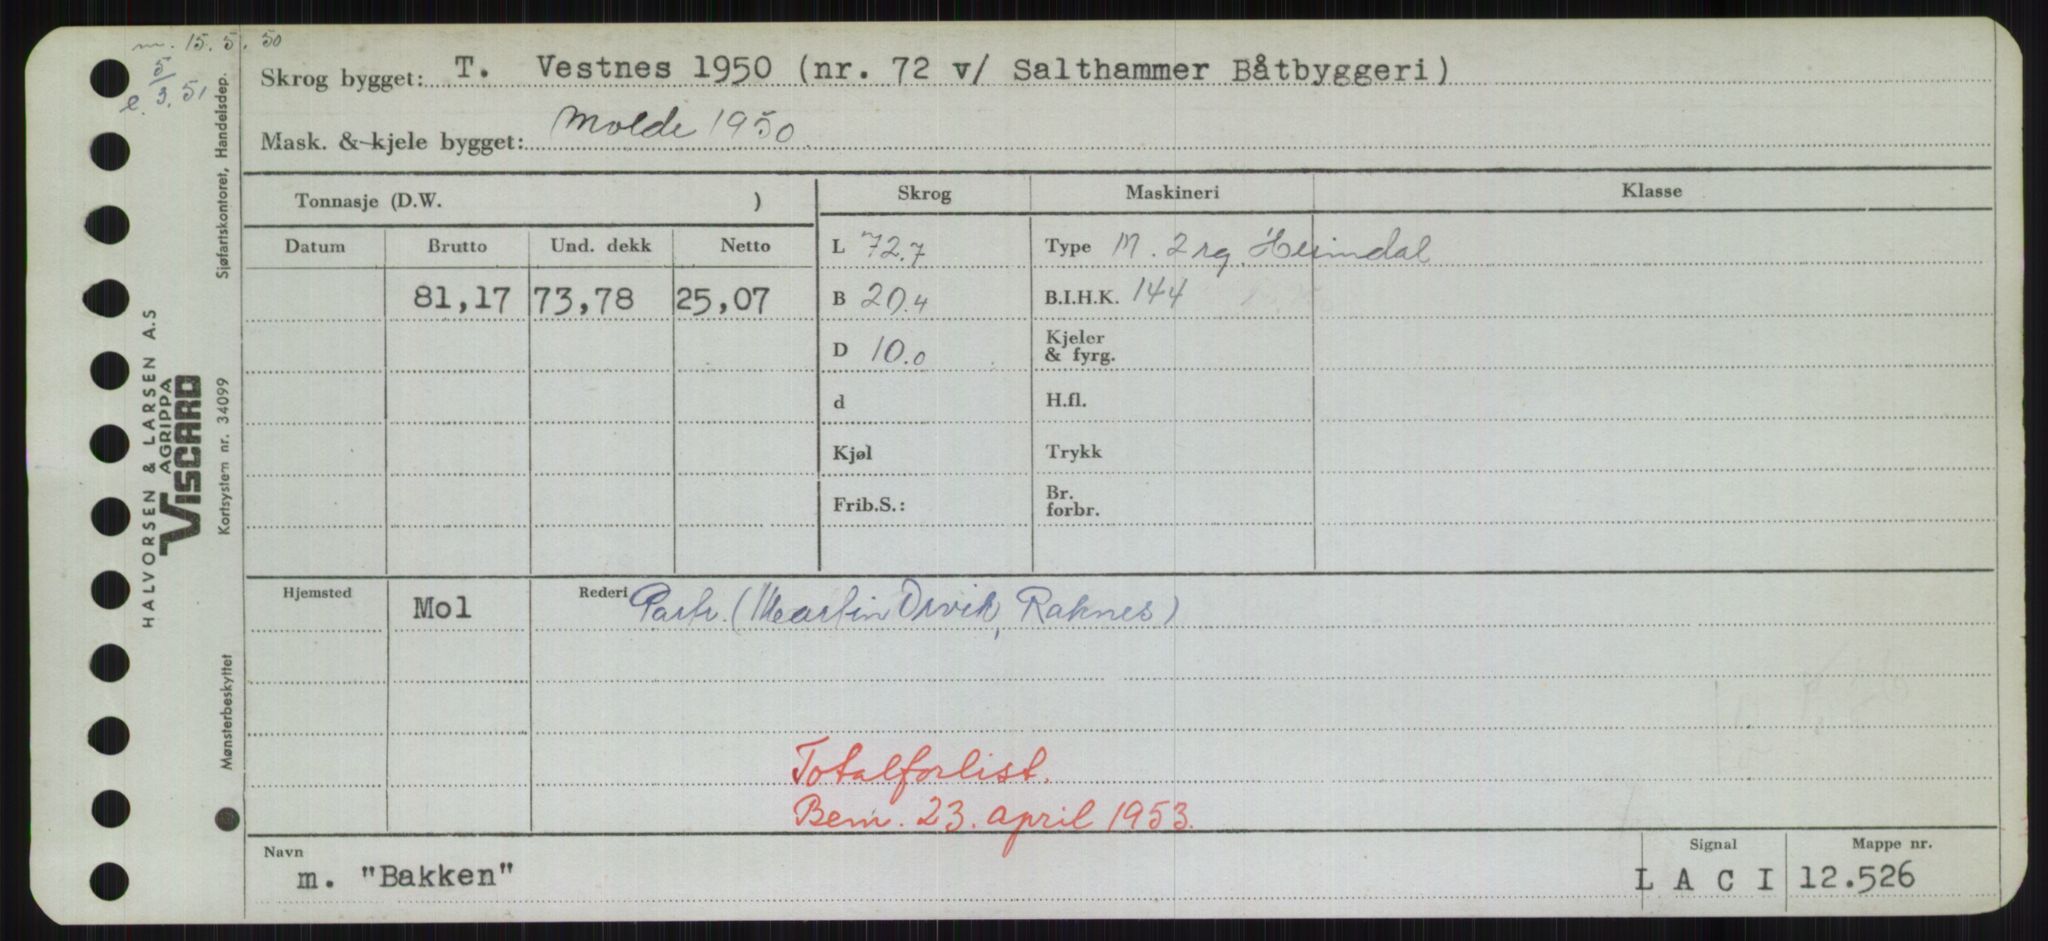 m. 15.5.50
5/3.51
Skrog bygget: T. Vestnes 1950 (nr. 72 v/ Salthammer Båtbyggeri)
Mask. & kjele bygget: Molde 1950
Tonnasje (D.W. )
Skrog Maskineri Klasse
Datum Brutto Und. dekk Netto
L 72.7 Type M. 2 rg. Heimdal
81,17 73,78 25,07
B 20.4 B.I.H.K. 144
D 10.0 Kjeler
& fyrg.
d H.fl.
Kjøl Trykk
Frib.S.: Br.
forbr.
Hjemsted Mol Rederi Partr. (Martin Orvik, Raknes)
Totalforlist.
Bem. 23. april 1953.
Navn Signal Mappe nr.
m. "Bakken" L A C I 12.526
HALVORSEN & LARSEN A.S
AGRIPPA
VISCARD
Sjøfartskontoret, Handelsdep.
Kortsystem nr. 34099
Mønsterbeskyttet